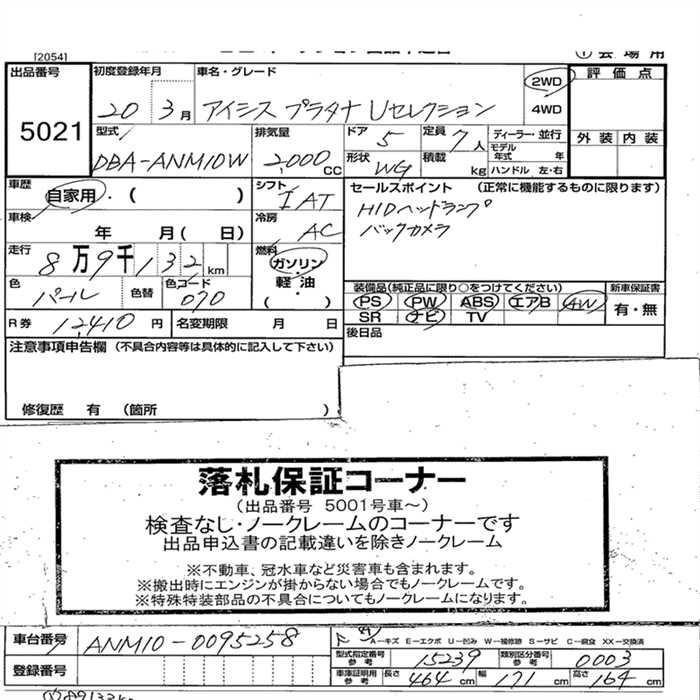 [2054]
① 会場用
出品番号 5021
初度登録年月 20 3月
車名・グレード アイシス プラタナ Uセレクション
2WD
4WD
評価点
外装 内装
型式 DBA-ANM10W
排気量 2,000 CC
ドア 5
定員 7人
形状 WG
積載 kg
ディーラー・並行
モデル年式 年
ハンドル 左・右
車歴 自家用・( )
シフト IAT
セールスポイント (正常に機能するものに限ります)
HIDヘッドランプ
バックカメラ
車検 年 月( 日)
冷房 AC
走行 8万9千132km
燃料 ガソリン・軽油・( )
色 パール
色替
色コード 070
装備品(純正品に限り○をつけてください)
PS PW ABS エアB AW
SR ナビ TV
新車保証書
有・無
R券 12,410円
名変期限 月 日
後日品
注意事項申告欄 (不具合内容等は具体的に記入して下さい)
修復歴 有 (箇所 )
落札保証コーナー
(出品番号 5001号車~)
検査なし・ノークレームのコーナーです
出品申込書の記載違いを除きノークレーム
※不動車、冠水車など災害車も含まれます。
※搬出時にエンジンが掛からない場合でもノークレームです。
※特殊特装部品の不具合についてもノークレームになります。
車台番号 ANM10-0095258
A-キズ E-エクボ U-凹み W-補修跡 S-サビ C-腐食 XX-交換済
型式指定番号 参考 15239
類別区分番号 参考 0003
登録番号
車庫証明用 参考 長さ 464cm 幅 171cm 高さ 164cm